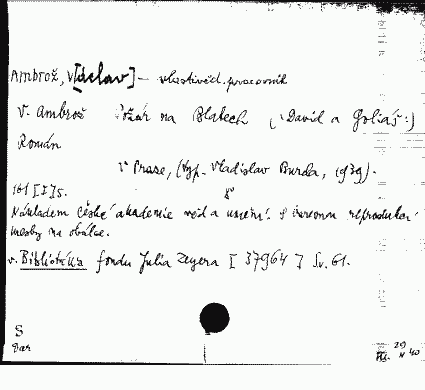 Ambrož, V[áclav] – vlastivěd. pracovník
V. Ambrož Požár na Blatech (: David a Goliáš :)
Román
V Praze, (typ. Vladislav Burda, 1939).
161 [I] s. 8°
Nákladem České akademie věd a umění. S barevnou reprodukcí
na obálce.
v. Bibliotéka fondu Julia Zeyera [37964] Sv. 61.
S
Dar
29
40